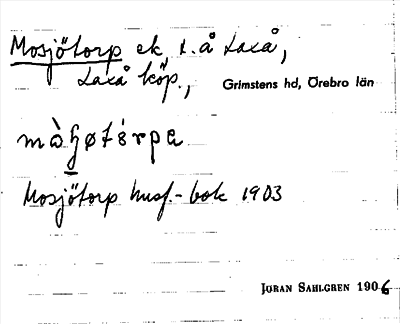 Mosjötorp ek t. å Laxå,
Laxå köp., Grimstens hd, Örebro län
mòʃøtórpa
Mosjötorp husf.-bok 1903
JÖRAN SAHLGREN 1906